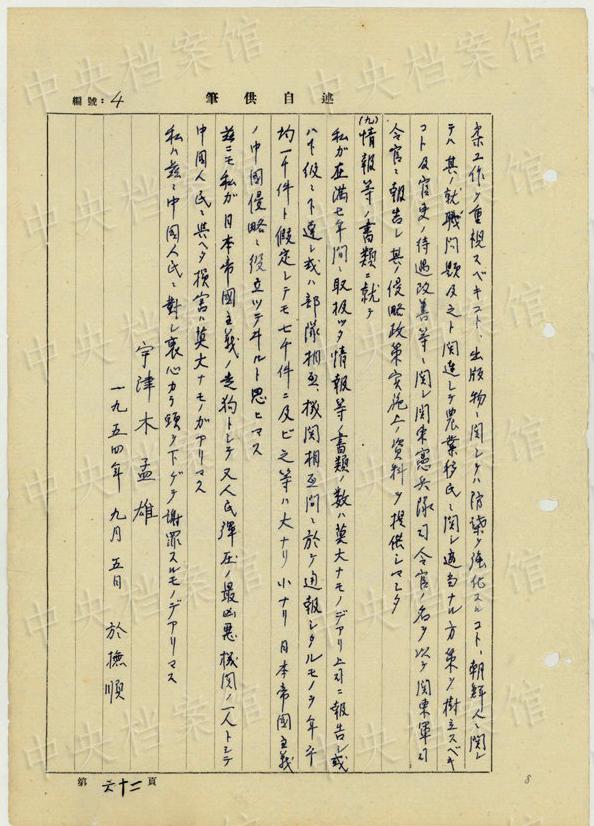 述自供筆
編號：4
柔工作ヲ重視スベキコト、出版物ニ関シテハ防諜ヲ強化スルコト、朝鮮人ニ関シ
テハ其ノ就職問題及之ト関連シテ農業移民ニ関シ適当ナル方策ヲ樹立スベキ
コト及官吏ノ待遇改善等ニ関シ関東憲兵隊司令官ノ名ヲ以テ関東軍司
令官ニ報告シ其ノ侵略政策実施上ノ資料ヲ提供シマシタ
(九)情報等ノ書類ニ就テ
私ガ在満七年間ニ取扱ッタ情報等ノ書類ノ数ハ莫大ナモノデアリ上司ニ報告シ或
ハ下級ニ下達シ或ハ部隊相互、機関相互間ニ於テ通報シタルモノヲ年平
均一千件ト假定シテモ七千件ニ及ビ之等ハ大ナリ小ナリ日本帝國主義
ノ中國侵略ニ役立ッテヰルト思ヒマス
茲ニモ私ガ日本帝國主義ノ走狗トシテ又人民彈圧ノ最凶悪機関ノ一人トシテ
中國人民ニ與ヘタ損害ハ莫大ナモノガアリマス
私ハ茲ニ中國人民ニ對シ衷心カラ頭ヲ下ゲテ謝罪スルモノデアリマス
宇津木孟雄
一九五四年九月五日 於撫順
第六十二頁
8
中央档案馆